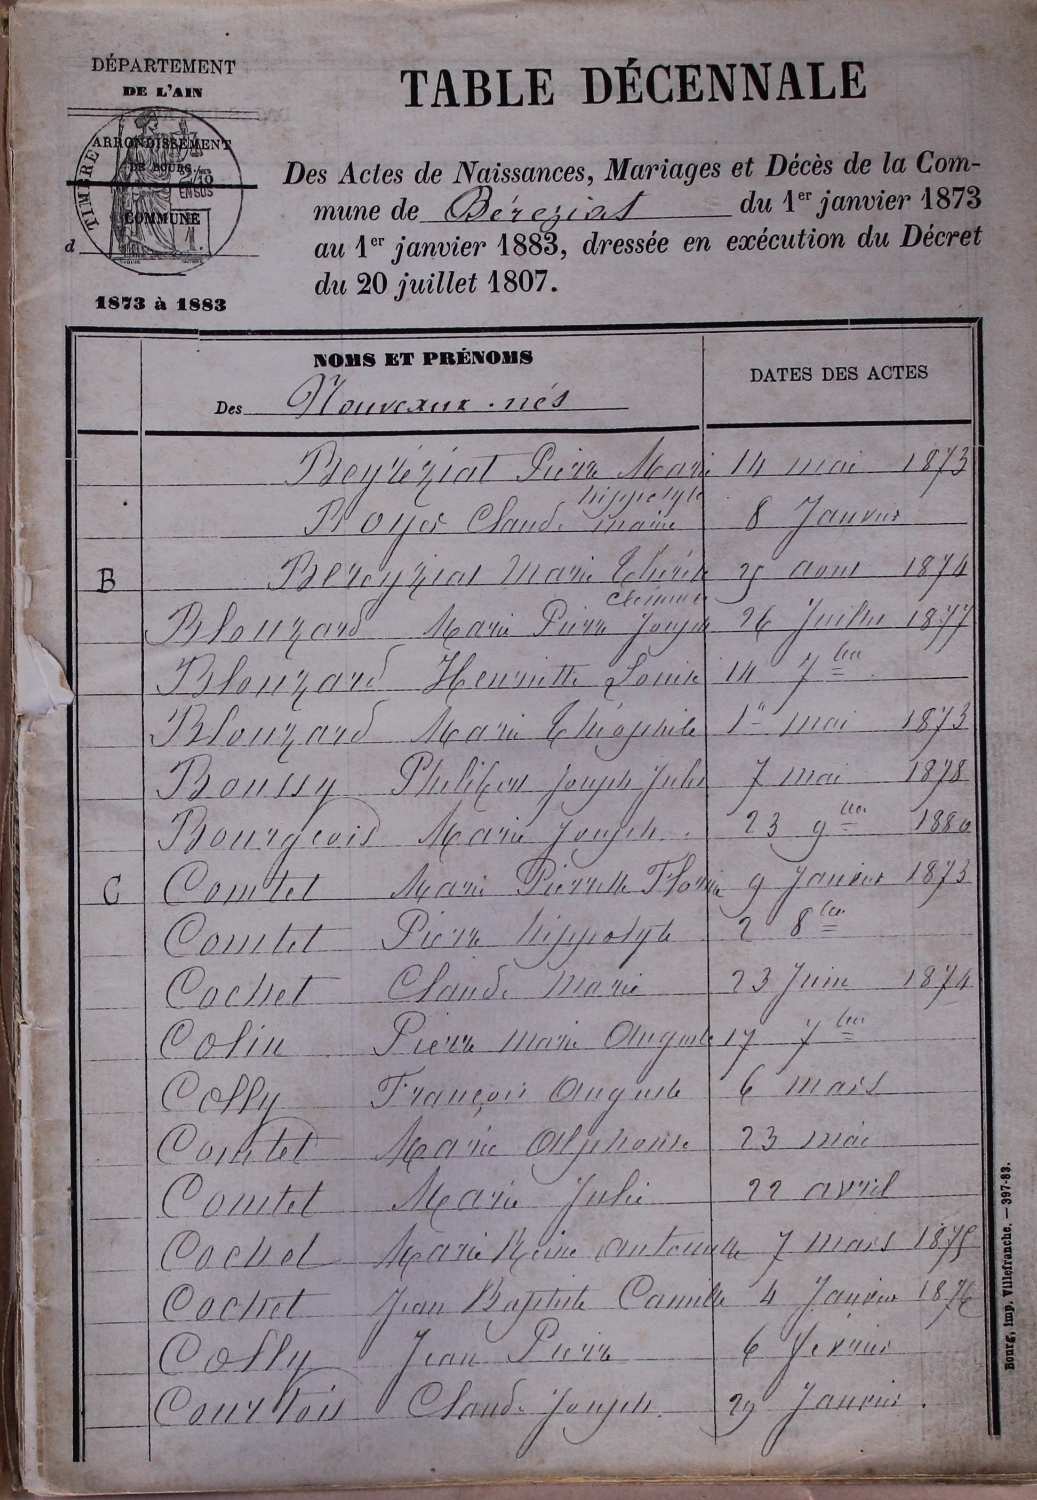 DÉPARTEMENT
DE L'AIN
ARRONDISSEMENT
DE BOURG
TIMBRE
2/10
EN SUS
COMMUNE
d
1873 à 1883
TABLE DÉCENNALE
Des Actes de Naissances, Mariages et Décès de la Com-
mune de Béreziat du 1er janvier 1873
au 1er janvier 1883, dressée en exécution du Décret
du 20 juillet 1807.
NOMS ET PRÉNOMS
Des Nouveaux-nés
DATES DES ACTES
Beyréziat Pierre Marie 14 mai 1873
hippolyte
Royer Claude marie 8 Janvier
B Bereyziat Marie Thérèse 25 aout 1874
Clémence
Blouzard Marie Pierre Joseph 26 Juillet 1877
Blouzard Henriette Louise 14 7bre
Blouzard Marie Théophile 1er mai 1873
Boussy Philibert Joseph Jules 7 mai 1878
Bourgeois Marie Joseph. 23 9bre 1880
C Comtet Marie Pierrette Florine 9 Janvier 1873
Comtet Pierre hippolyte 2 8bre
Cochet Claude Marie 23 Juin 1874
Colin Pierre marie Auguste 17 7bre
Colly François Auguste 6 mars
Comtet Marie Alphonse 23 mai
Comtet Marie Julie 22 avril
Cochet Marie Reine Antoinette 7 mars 1875
Cochet Jean Baptiste Camille 4 Janvier 1876
Colly Jean Pierre 6 février
Courtois Claude Joseph. 29 Janvier.
Bourg, imp. Villefranche. — 397-83.